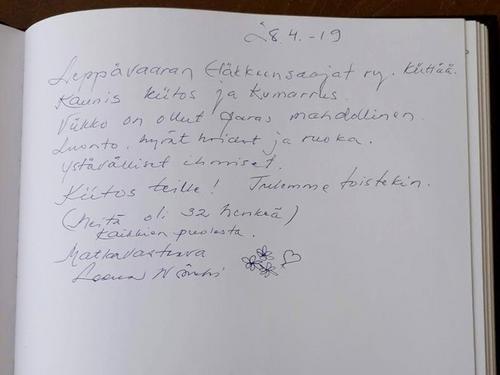 28.4.-19
Leppävaaran Eläkkeensaajat ry. kiittää.
Kaunis kiitos ja kumarrus.
Viikko on ollut paras mahdollinen.
Luonto, hyvät hoidot ja ruoka.
Ystävälliset ihmiset.
Kiitos teille! Tulemme toistekin.
(Meitä oli 32 henkeä)
Kaikkien puolesta.
Matkavastaava
Leena